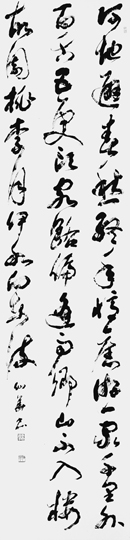 何地避春愁終年憶舊游一家千里外
百舌五更頭客路偏逢雨鄉山不入樓
故園桃李月伊水向東流